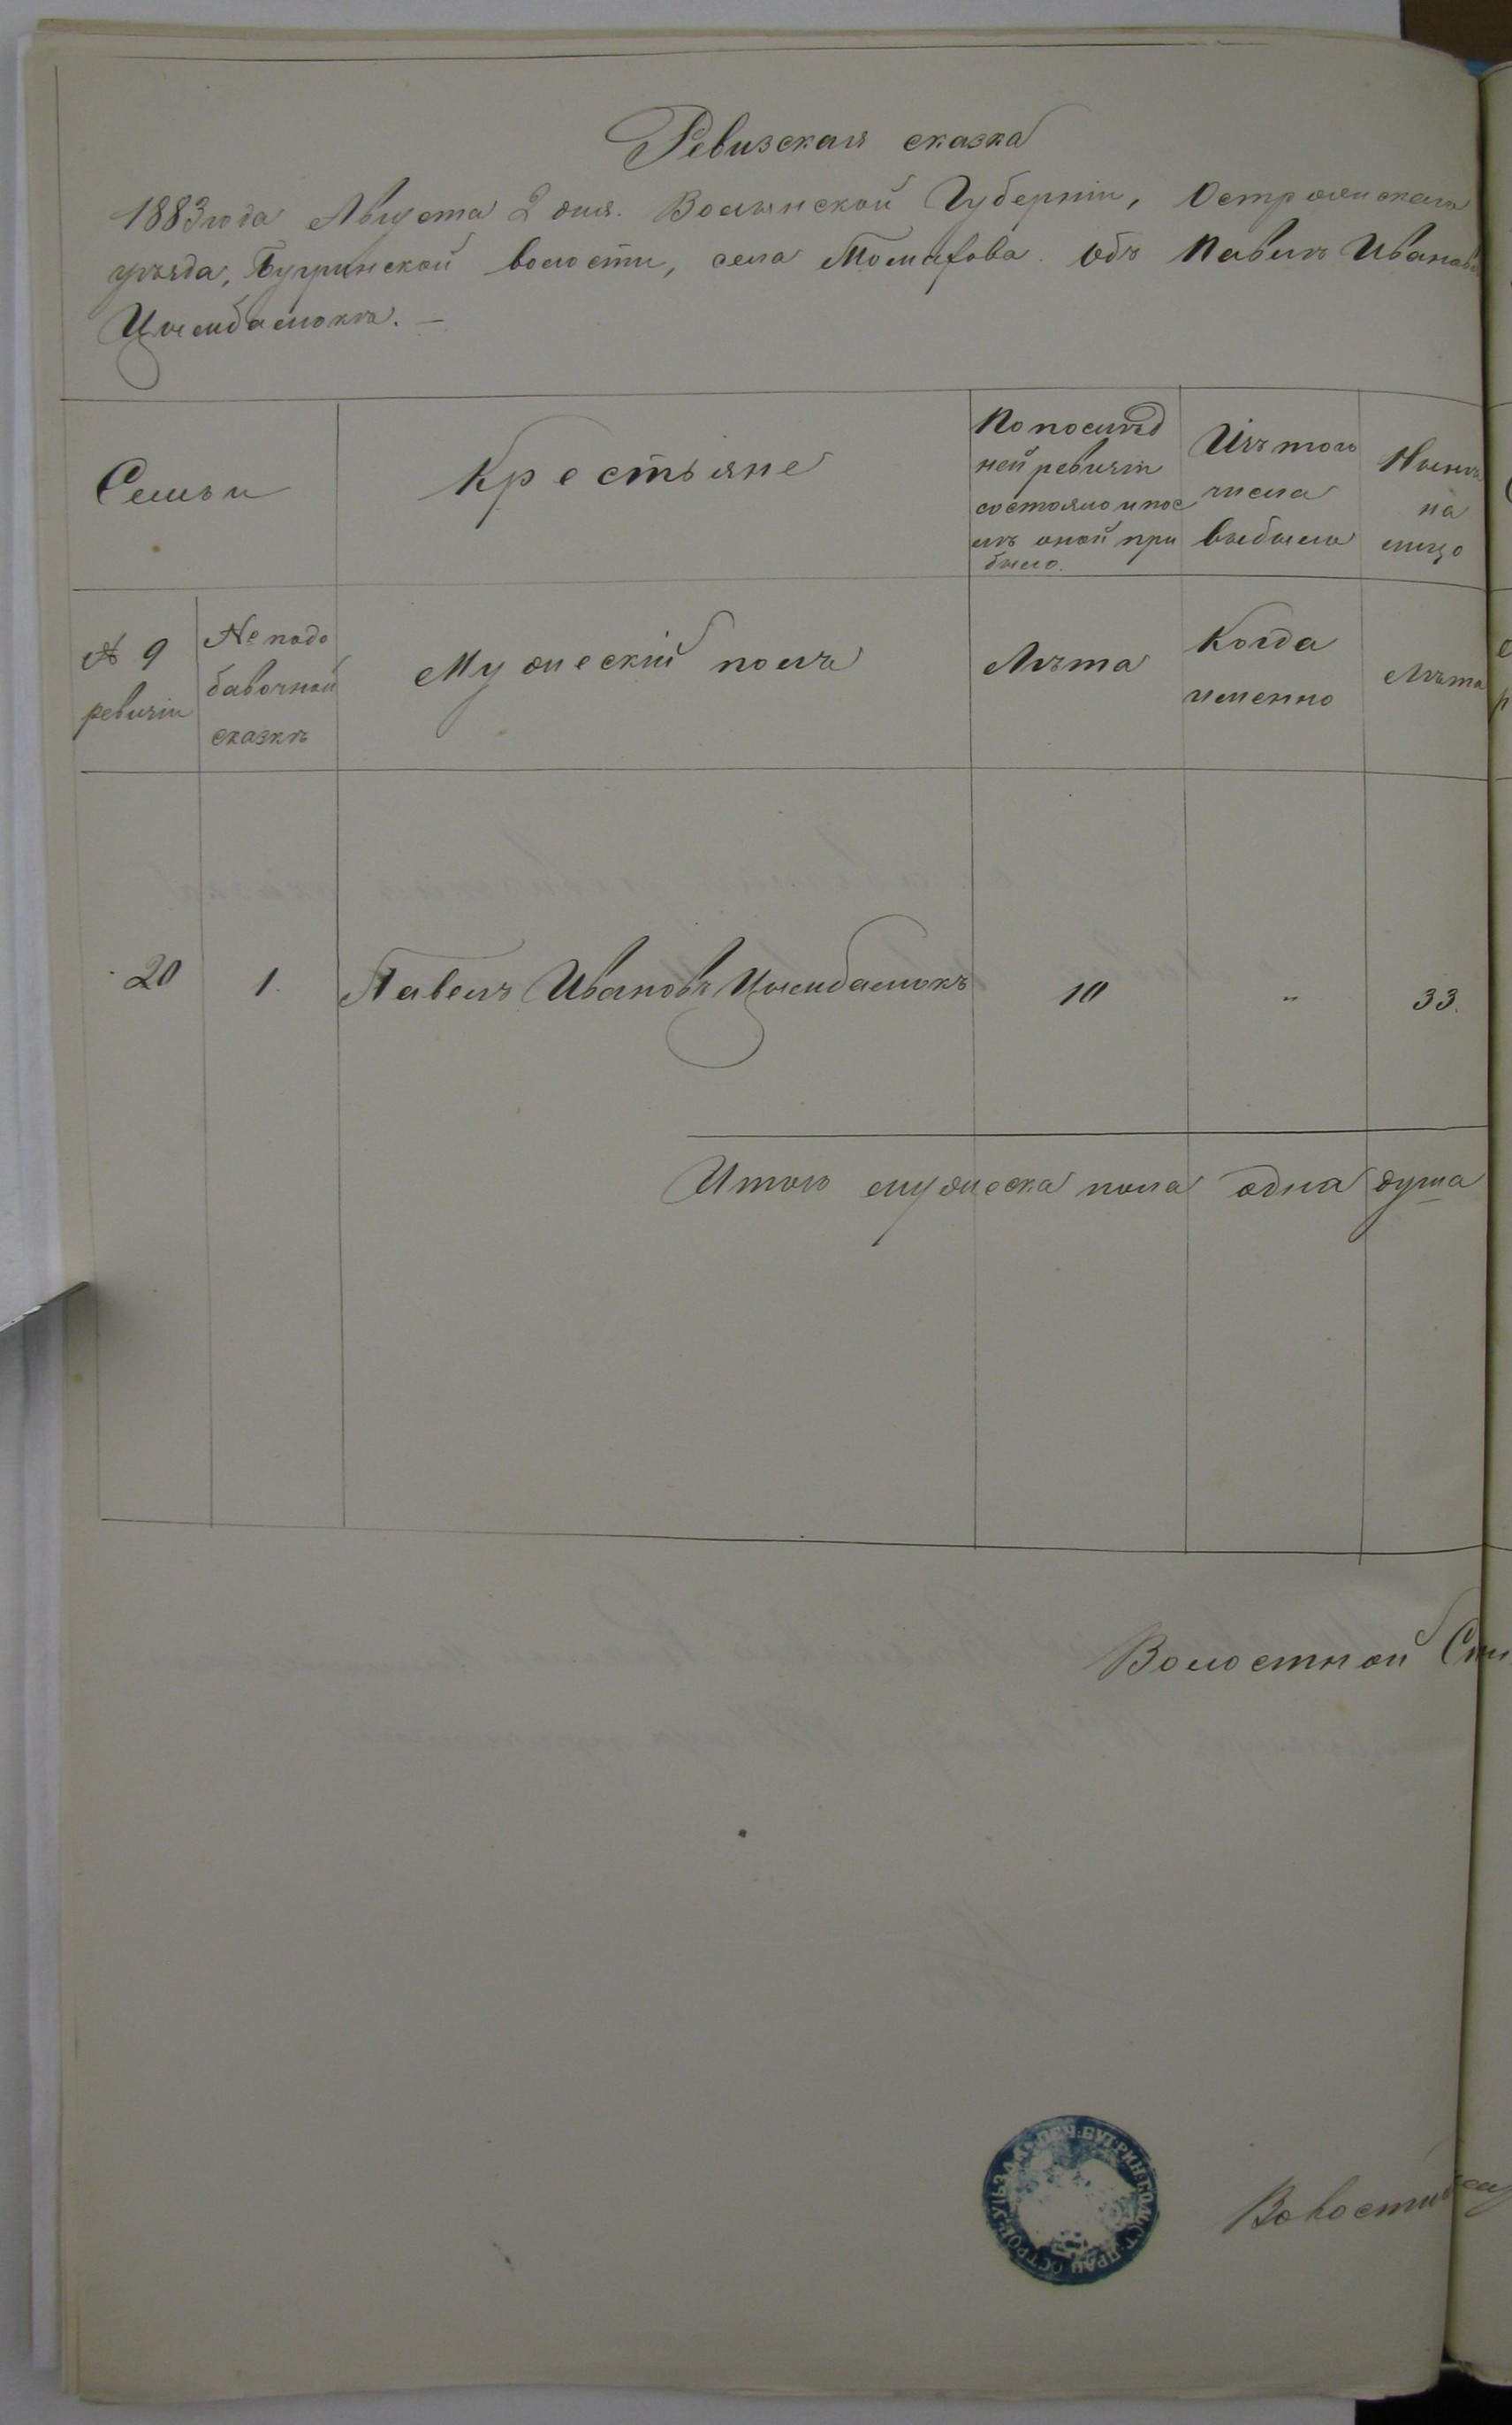 Ревизская сказка
1883 года Августа 2 дня. Волынской Губерніи, Острожскаго
уѣзда, Бугринской волости, села Томахова. Объ Павлѣ Иванов
Цымбалюкѣ. —
Семьи
Крестьяне
По послѣд
ней ревизіи
состояло и пос
лѣ оной при
было.
Изъ того
числа
выбыло
Нынѣ
на
лицо
№ 9
ревизіи
№ по до
бавочной
сказкѣ
Мужескій полъ
Лѣта
Когда
именно
Лѣта
20
1.
Павелъ Ивановъ Цымбалюкъ
10
"
33.
Итого мужеска пола одна душа
Волостной